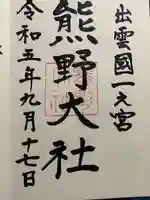 出雲國一之宮
熊野大社
令和五年九月十七日